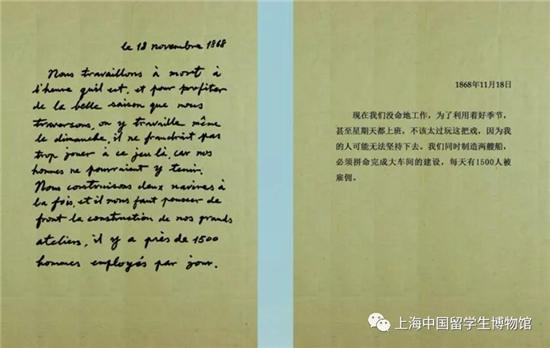 le 18 novembre 1868
Nous travaillons à mort à
l'heure qu'il est, et pour profiter
de la belle saison que nous
traversons, on y travaille même
le dimanche, il ne faudrait pas
trop jouer à ce jeu là, car nos
hommes ne pourraient y tenir.
Nous construisons deux navires à
la fois, et il nous faut pousser de
front la construction de nos grands
ateliers, il y a près de 1500
hommes employés par jour.
1868年11月18日
现在我们没命地工作，为了利用着好季节，
甚至星期天都上班，不该太过玩这把戏，因为我
的人可能无法坚持下去。我们同时制造两艘船，
必须拼命完成大车间的建设，每天有1500人被
雇佣。
上海中国留学生博物馆